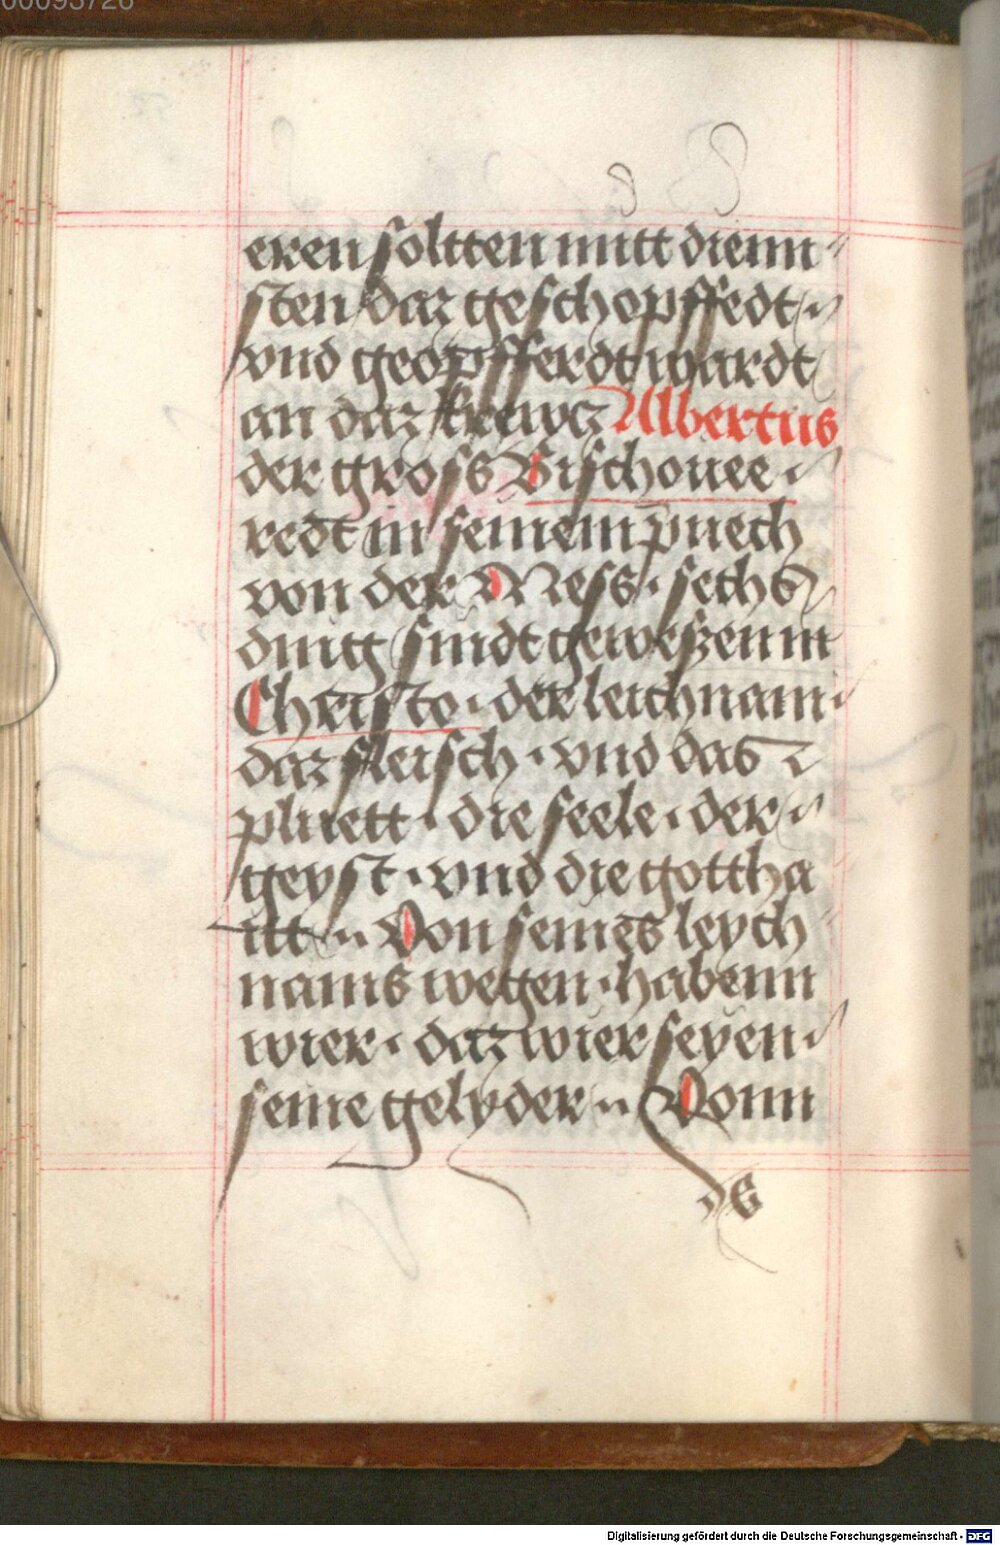 00093726
eren soltten mitt dienn
sten daz geschopffedt
vnd geopfferdt wardt
an daz krewcz Albertus
der gross Bischouee
redt in seinem puech
von der Mess · sechs
dinng sindt geweszen in
Christo · der leichnam
daz fleisch · vnd das
pluett · die seele · der
geyst · vnd die gottha
itt Von seines leych
nams wegen · habenn
wier · daz wier seyen
seine gelyder Vonn
Digitalisierung gefördert durch die Deutsche Forschungsgemeinschaft - DFG